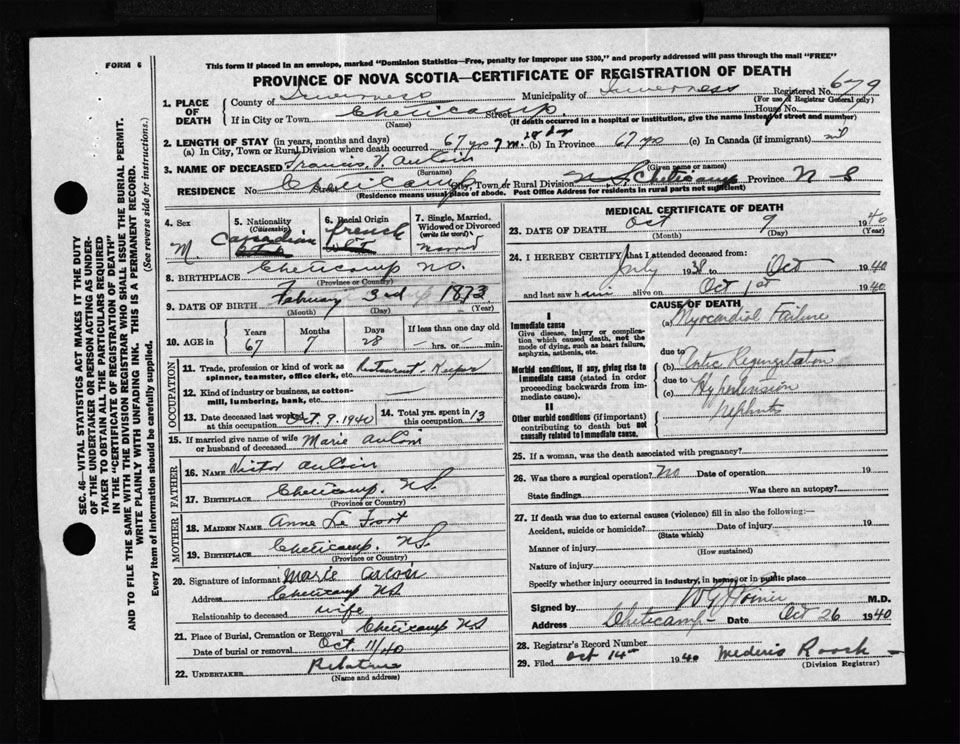 FORM 6
This form if placed in an envelope, marked "Dominion Statistics—Free, penalty for improper use $300," and properly addressed will pass through the mail "FREE"
PROVINCE OF NOVA SCOTIA—CERTIFICATE OF REGISTRATION OF DEATH
Registered No. 679
(For use of Registrar General only)
1. PLACE OF DEATH
County of Inverness Municipality of Inverness
If in City or Town Cheticamp Street House No.
(Name) (If death occurred in a hospital or institution, give the name instead of street and number)
2. LENGTH OF STAY (in years, months and days)
(a) In City, Town or Rural Division where death occurred 67 yrs 7 m. 28 dys (b) In Province 67 yrs (c) In Canada (if immigrant)
3. NAME OF DECEASED Francis V. Aucoin
(Surname) (Given name or names)
RESIDENCE No. Street Cheticamp City, Town or Rural Division N.S. Cheticamp Province N S
(Residence means usual place of abode. Post Office Address for residents in rural parts not sufficient)
4. Sex M.
5. Nationality (Citizenship) Canadian
6. Racial Origin French
7. Single, Married, Widowed or Divorced (write the word) Married
8. BIRTHPLACE Cheticamp NS.
(Province or Country)
9. DATE OF BIRTH February 3rd 1873
(Month) (Day) (Year)
10. AGE in Years 67 Months 7 Days 28 If less than one day old hrs. or min.
OCCUPATION
11. Trade, profession or kind of work as spinner, teamster, office clerk, etc. Restaurant-Keeper
12. Kind of industry or business, as cotton-mill, lumbering, bank, etc.
13. Date deceased last worked at this occupation Oct. 9. 1940
14. Total yrs. spent in this occupation 13
15. If married give name of wife or husband of deceased Marie Aucoin
FATHER
16. NAME Victor Aucoin
17. BIRTHPLACE Cheticamp, N.S.
(Province or Country)
MOTHER
18. MAIDEN NAME Anne Le Fort
19. BIRTHPLACE Cheticamp, N.S.
(Province or Country)
20. Signature of informant Marie Aucoin
Address Cheticamp NS
Relationship to deceased wife
21. Place of Burial, Cremation or Removal Cheticamp NS
Date of burial or removal Oct. 11/40
22. UNDERTAKER Relatives
(Name and address)
MEDICAL CERTIFICATE OF DEATH
23. DATE OF DEATH Oct 9 1940
(Month) (Day) (Year)
24. I HEREBY CERTIFY that I attended deceased from:
July 1938 to Oct 1940
and last saw him alive on Oct 1st 1940
CAUSE OF DEATH
I
Immediate cause
Give disease, injury or complication which caused death, not the mode of dying, such as heart failure, asphyxia, asthenia, etc.
(a) Myocardial Failure
due to
Morbid conditions, if any, giving rise to immediate cause (stated in order proceeding backwards from immediate cause).
(b) Aortic Regurgitation
due to
(c) Hypertension
II
Other morbid conditions (if important) contributing to death but not causally related to immediate cause.
Nephritis
25. If a woman, was the death associated with pregnancy?
26. Was there a surgical operation? No Date of operation 19
State findings Was there an autopsy?
27. If death was due to external causes (violence) fill in also the following:—
Accident, suicide or homicide? Date of injury 19
(State which)
Manner of injury
(How sustained)
Nature of injury
Specify whether injury occurred in industry, in home, or in public place
Signed by M.D.
Address Cheticamp Date Oct 26 1940
28. Registrar's Record Number
29. Filed Oct 14th 1940 Mederic Roach
(Division Registrar)
SEC. 46—VITAL STATISTICS ACT MAKES IT THE DUTY
OF THE UNDERTAKER OR PERSON ACTING AS UNDER-
TAKER TO OBTAIN ALL THE PARTICULARS REQUIRED
IN THE "CERTIFICATE OF REGISTRATION OF DEATH"
AND TO FILE THE SAME WITH THE DIVISION REGISTRAR WHO SHALL ISSUE THE BURIAL PERMIT.
WRITE PLAINLY WITH UNFADING INK. THIS IS A PERMANENT RECORD.
(See reverse side for instructions.)
Every item of information should be carefully supplied.